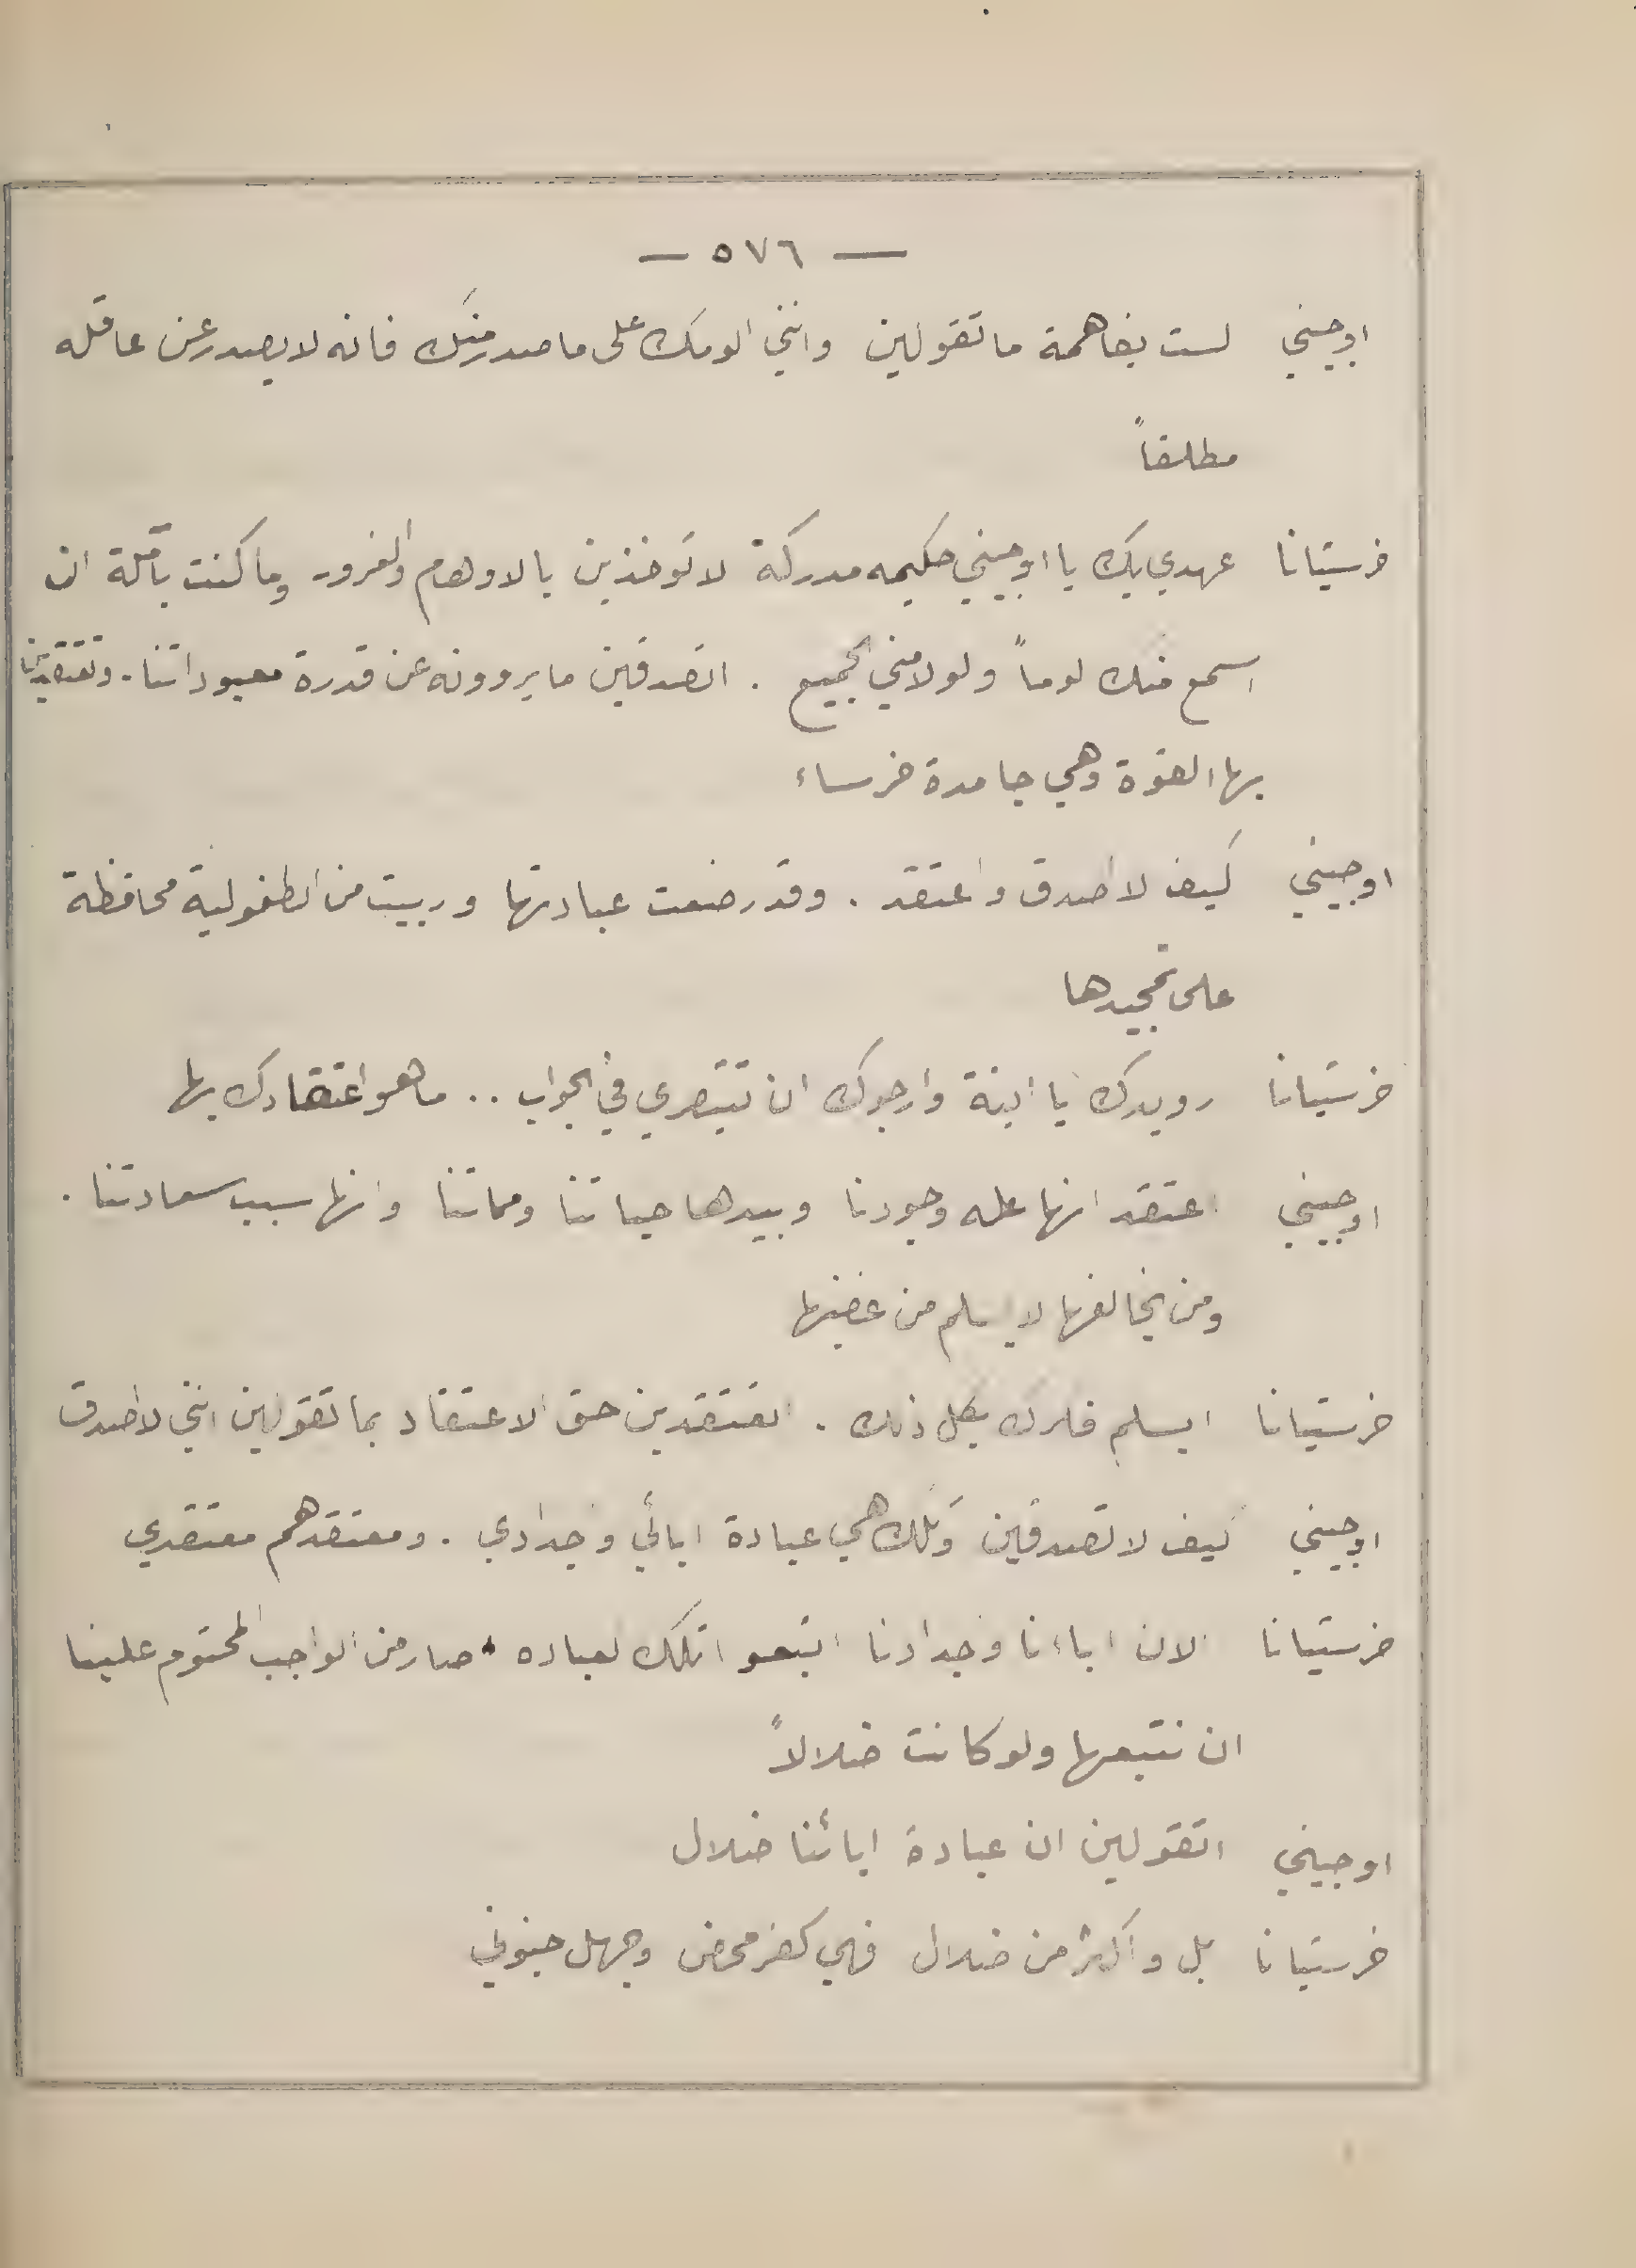 — ٥٧٦ —
اوجيني لست بفاهمة ما تقولين وانني الومك على ما صدر منك فانه لا يصدر عن عاقله
مطلقاً
خرستيانا عهدي بك يا اوجيني حكيمه مدركة لا تؤخذين بالاوهام والغرور وما كنت بآملة ان
اسمع منك لوماً ولو لامني الجميع . اتصدقين ما يروونه عن قدرة معبوداتنا . وتعتقدين
بها القوة وهي جامدة خرساء
اوجيني كيف لا اصدق واعتقد . وقد رضعت عبادتها وربيت من الطفولية محافظة
على تمجيدها
خرستيانا رويدك يا ابنة وارجوك ان تتبصري في الجواب .. ما هو اعتقادك بها
اوجيني اعتقد انها عله وجودنا وبيدها حياتنا ومماتنا وانها سبب سعادتنا .
ومن يخالفها لا يسلم من غضبها
خرستيانا ايسلم فكرك بكل ذلك . اتعتقدين حق الاعتقاد بما تقولين انني لا اصدق
اوجيني كيف لا تصدقين وتلك هي عبادة ابائي واجدادي . ومعتقدهم معتقدي
خرستيانا الان اباءنا واجدادنا اتبعوا تلك لعباده صار من الواجب المحتوم علينا
ان نتبعها ولو كانت ضلالاً
اوجيني اتقولين ان عبادة ابائنا ضلال
خرستيانا بل واكثر من ضلال فهي كفر محض وجهل جنوني